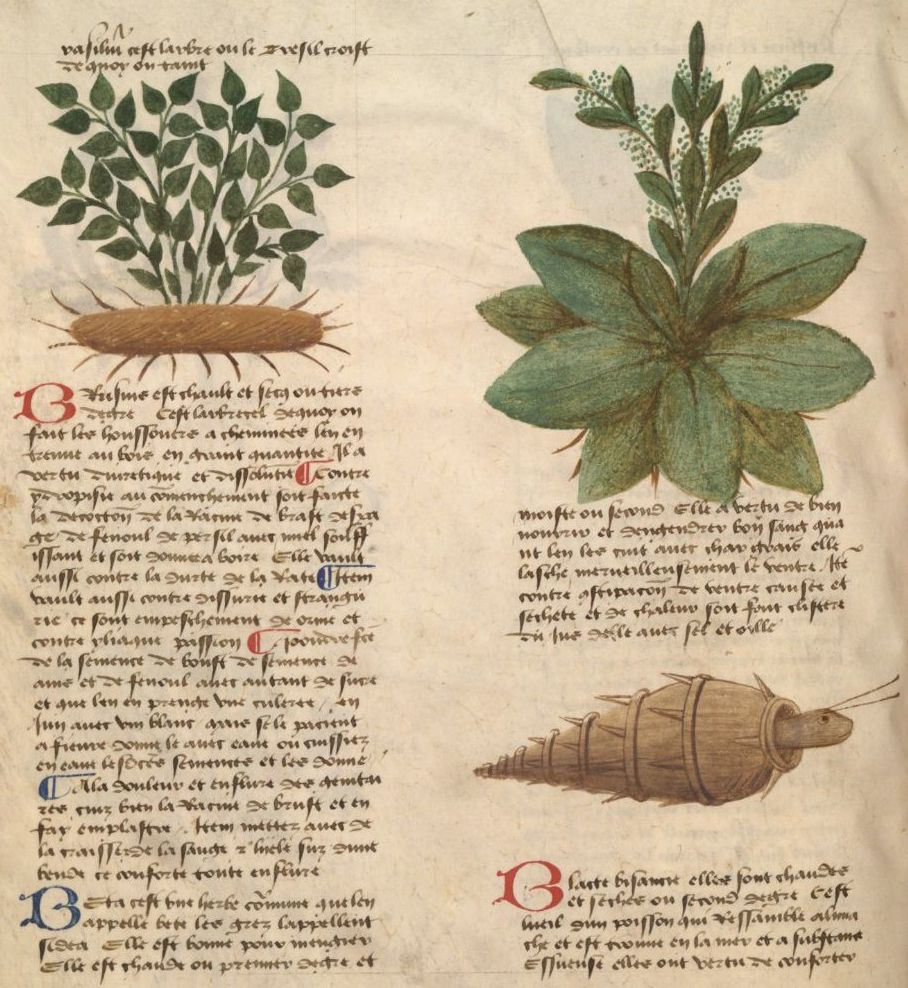 vasiliu cest larbre ou le Bresil croist
de quoy on taint
BRusius est chault et secq ou tiers
degre Cest larbrecel dequoy on
fait les houssouers a cheminees len en
treuue au bois en grant quantite Il a
vertu diuretique et dissolutiue ¶ Contre
ydropisie au comenchement soit faicte
la decoction de la Racine de brusc desparge
ge de fenoul de persil auec miel souff
issant et soit donnee a boire Elle vault
aussi contre la durte de la Rate ¶ Item
vault aussi contre dissurie et strangu
rie ce sont empeschement de orine et
contre yliaque passion ¶ pouldre fce
de la semence de brusc de semence de
anis et de fenoul auec autant de sucre
et que len en prenge vne culeree en
Jun auec vin blanc mais se le pacient
a fieure donne le auec eaue ou cuissiez
en eaue lesdces semences et les donne
¶ Ala douleur et enflure des genitai
res cuis bien la Racine de brusc et en
fay emplastre Item mettez auec de
la craisse de la sauge
bende ce conforte toute enflure
BEta cest vne herbe comune que len
appelle bete les grez lappellent
sidea Elle est bonne pour mengier
Elle est chaude ou premier degre et
moiste ou second Elle a vertu de bien
nourrir et dengendrer bon sang qua
nt len les cuit auec char grais elle
lasche merueilleusement le ventre Ite
contre costipacion de ventre causee et
sechete et de chaleur soit fait clistere
du Jus delle auec sel et oille
BLacte bisancie elles sont chaudes
et seches ou second degre Cest
lueil dun poisson qui Ressamble alima
che et est trouue en la mer et a substance
Elles ont vertu de conforter